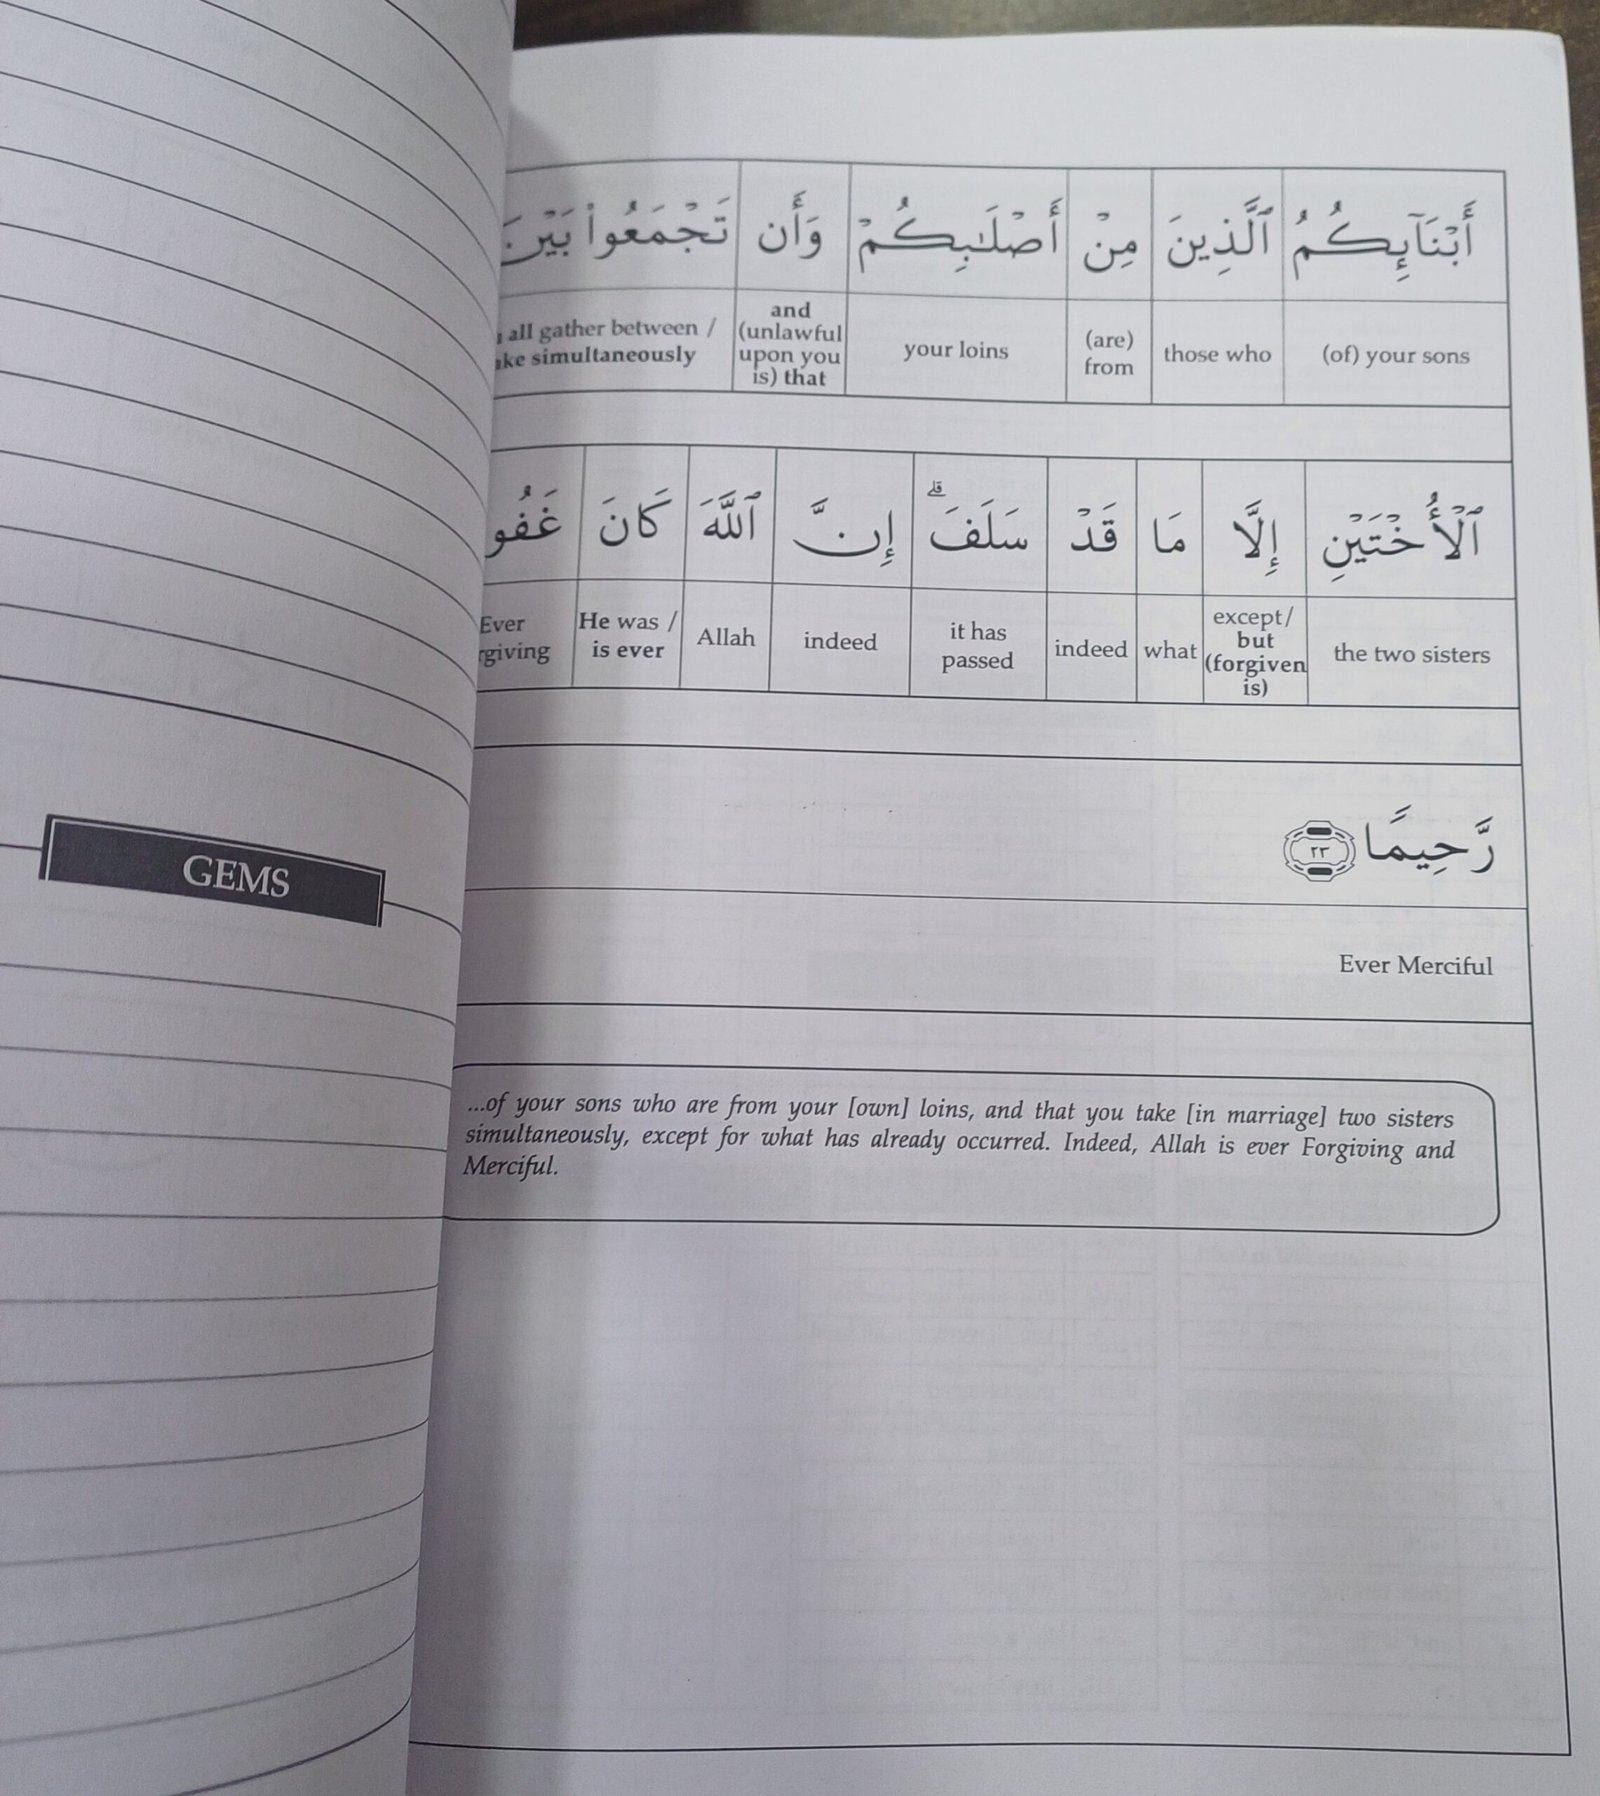 GEMS
أَبْنَآئِكُمُ ٱلَّذِينَ مِنْ أَصْلَـٰبِكُمْ وَأَن تَجْمَعُوا۟ بَيْنَ
(of) your sons
those who
(are)
from
your loins
and
(unlawful
upon you
is) that
all gather between /
simultaneously
ٱلْأُخْتَيْنِ إِلَّا مَا قَدْ سَلَفَ ۗ إِنَّ ٱللَّهَ كَانَ
the two sisters
except/
but
(forgiven
is)
what
indeed
it has
passed
indeed
Allah
He was /
is ever
Ever
رَّحِيمًا ٢٣
Ever Merciful
...of your sons who are from your [own] loins, and that you take [in marriage] two sisters
simultaneously, except for what has already occurred. Indeed, Allah is ever Forgiving and
Merciful.